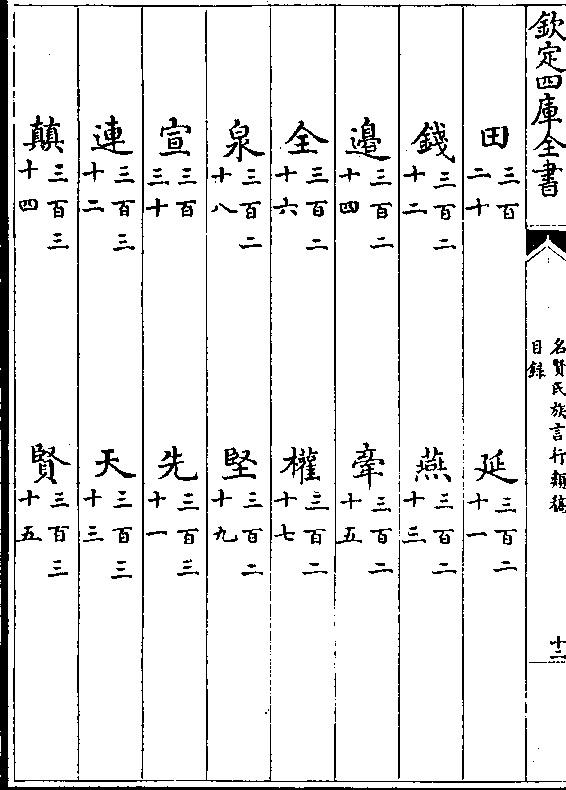 欽定四庫全書
名賢氏族言行類稿
目録
十二
田三百二十
延三百二十一
錢三百二十二
燕三百二十三
邉三百二十四
牽三百二十五
全三百二十六
權三百二十七
泉三百二十八
堅三百二十九
宣三百三十
先三百三十一
連三百三十二
天三百三十三
顛三百三十四
賢三百三十五